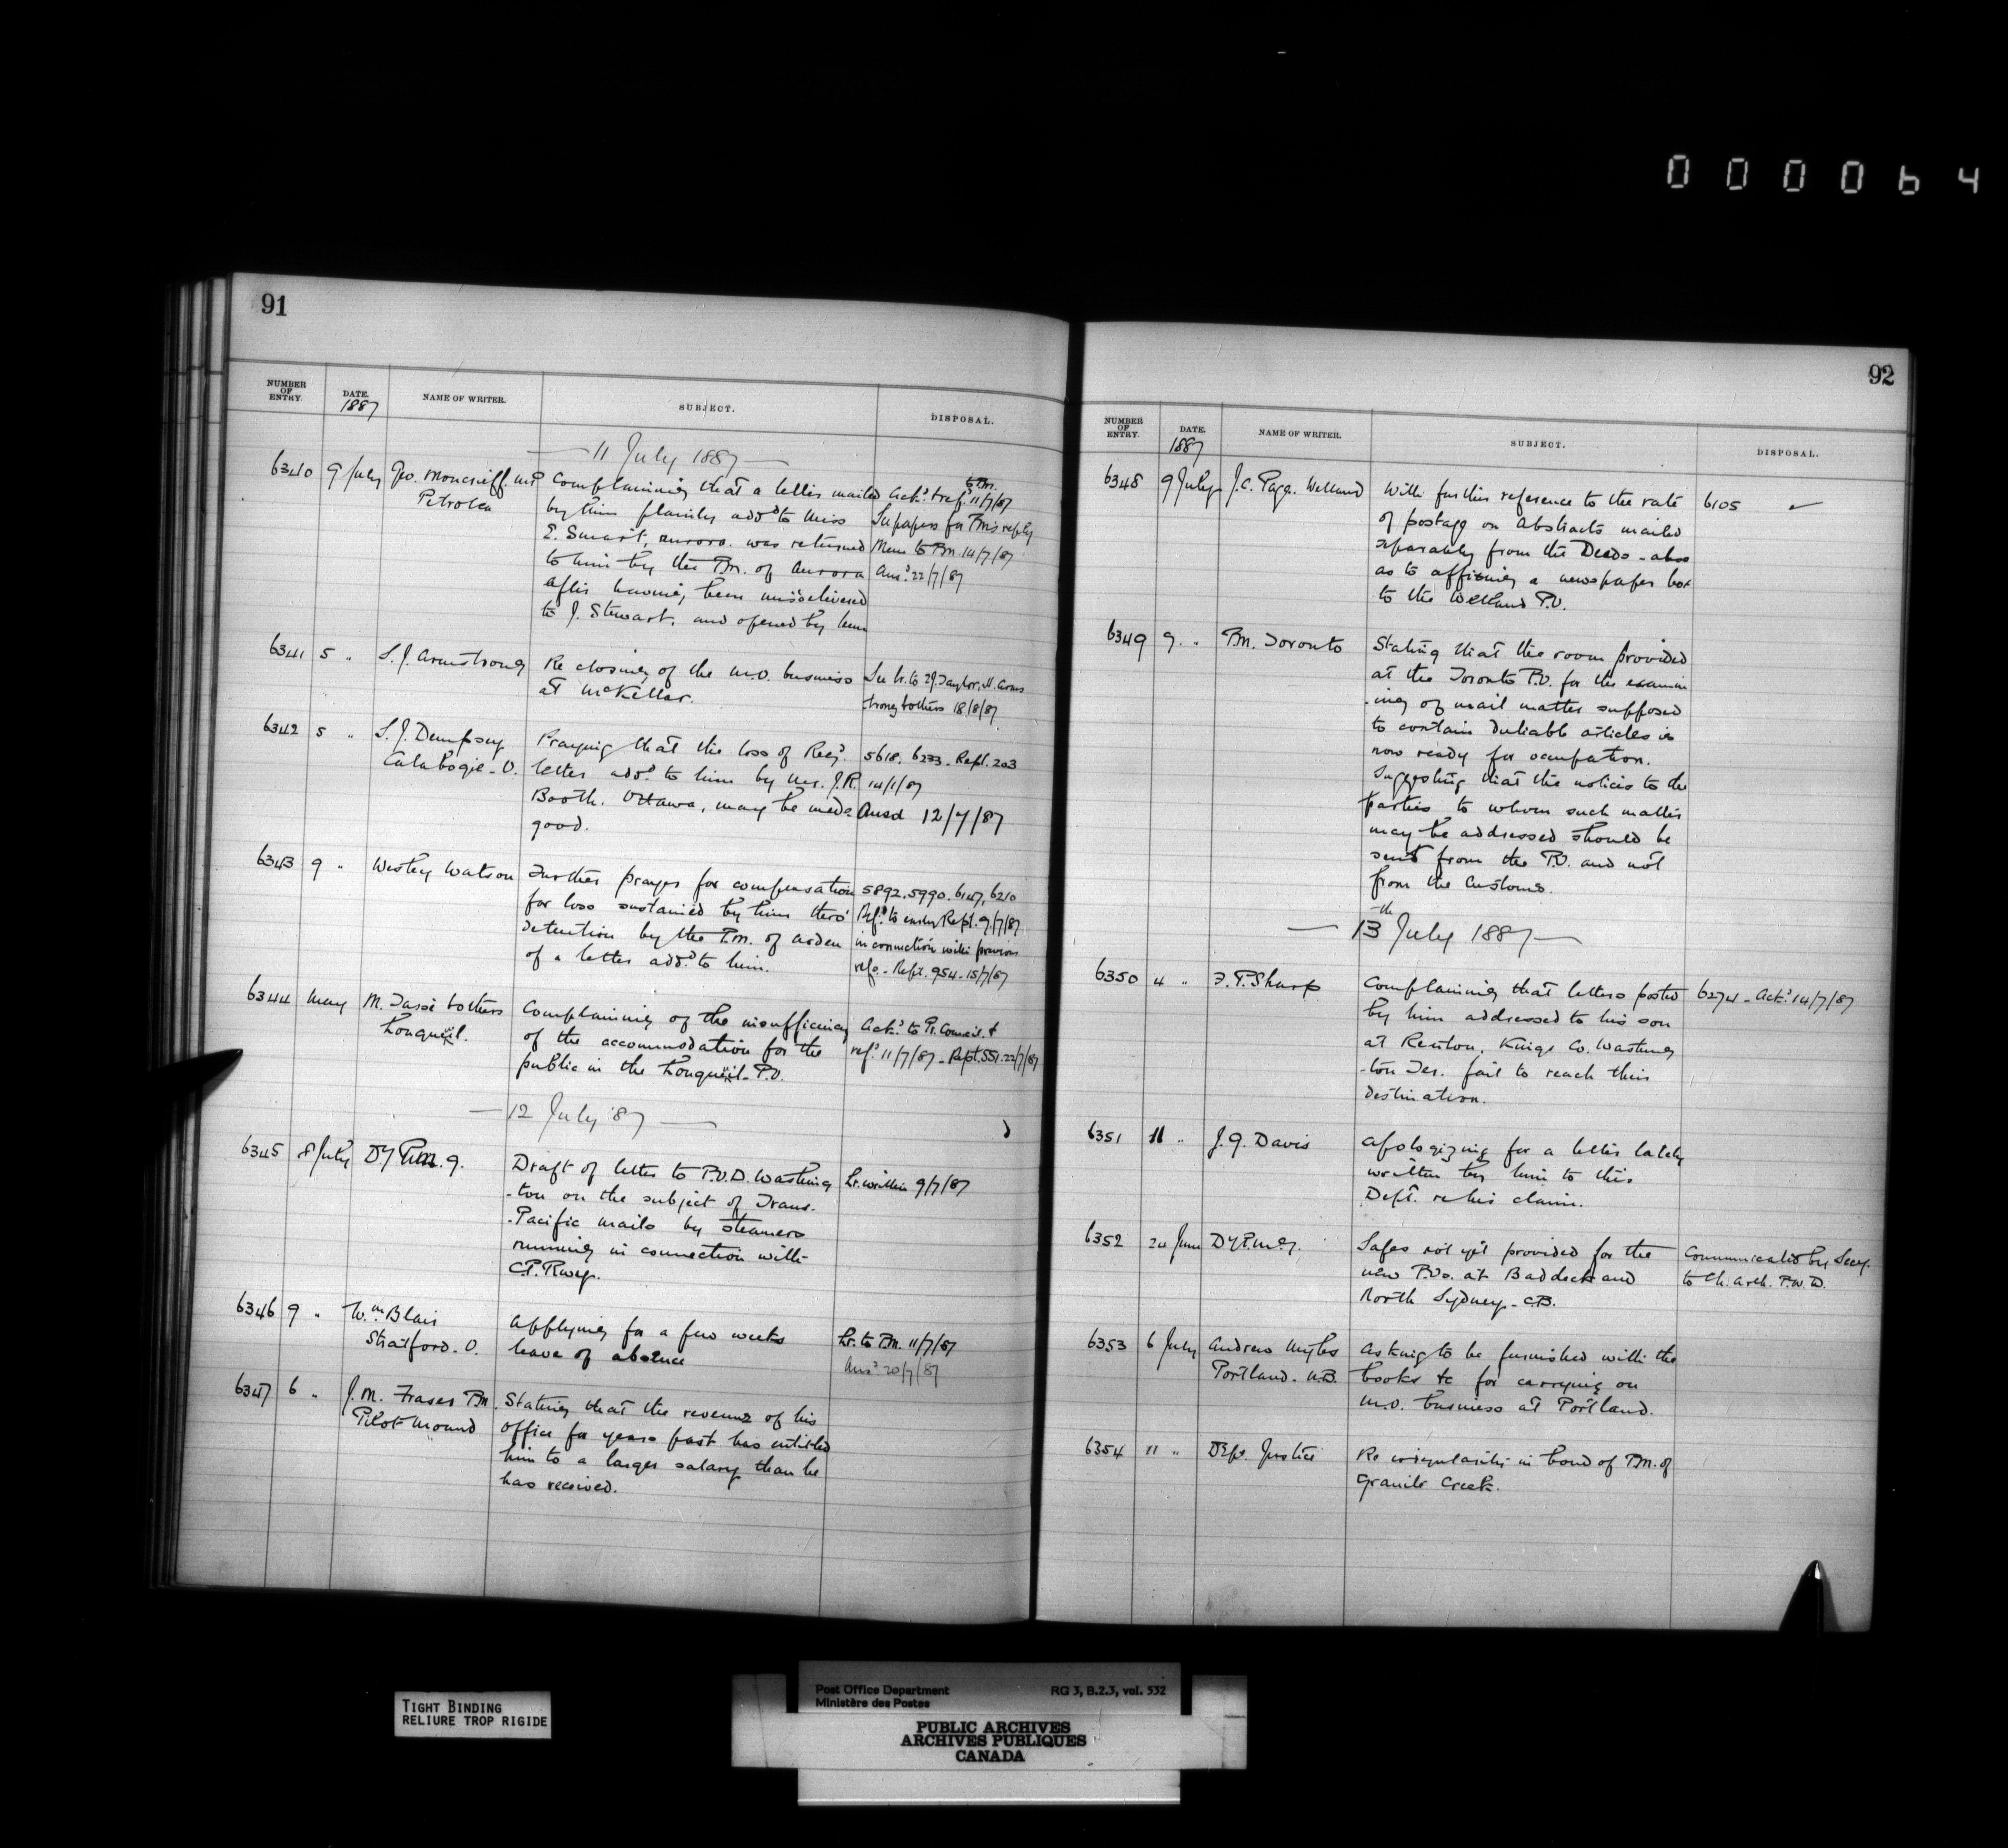 000064
91
NUMBER OF ENTRY.
DATE. 1887
NAME OF WRITER.
SUBJECT.
DISPOSAL.
— 11 July 1887 —
6340 9 July Geo. Moncrieff. M.P.
Petrolea
Complaining that a letter mailed
by him plainly addd to Miss
E. Smart, Aurora. was returned
to him by the P.M. of Aurora
after having been missdelivered
to J. Stewart, and opened by him
to P.M.
Ackd. & refd. 11/7/87
See papers for PM's reply
Memo to P.M. 14/7/87
Ansd. 22/7/87
6341 5 " S. J. Armstrong
Re closing of the M.O. business
at McKellar.
See lr. to J. Taylor, Arms
trong & others 18/8/87
6342 5 " S. J. Dempsey
Calabogie - O.
Praying that the loss of Regd.
letter addd. to him by Mr. J.R.
Booth. Ottawa, may be made
good.
5618. 6233. Rept. 203
14/1/87
Ansd 12/7/87
6343 9 " Wesley Watson
Further prayer for compensation
for loss sustained by him thro'
detention by the P.M. of Arden
of a letter addd. to him.
5892. 5990. 6147, 6210
Refd. to Rept. 9/7/87
in connection with previous
refs. - Rept. 954 - 15/7/87
6344 May M. Tassé & others
Longueuil.
Complaining of the insufficiency
of the accommodation for the
public in the Longueuil P.O.
Ackd. to Pr. Council &
refd. 11/7/87 - Rept. 551. 22/7/87
— 12 July '87 —
6345 8 July DyP.M.G.
Draft of letter to P.O.D. Washing
-ton on the subject of Trans.
-Pacific mails by steamers
running in connection with
C.P. Rwy.
Lr. written 9/7/87
6346 9 " Wm. Blair
Stratford. O.
Applying for a few weeks
leave of absence
Lr. to P.M. 11/7/87
Ansd 20/7/87
6347 6 " J. M. Fraser P.M.
Pilot Mound
Stating that the revenue of his
office for years past has entitled
him to a larger salary than he
has received.
92
NUMBER OF ENTRY.
DATE. 1887
NAME OF WRITER.
SUBJECT.
DISPOSAL.
6348 9 July J. C. Page. Welland
With further reference to the rate
of postage on Abstracts mailed
separately from the Deeds - also
as to affixing a newspaper box
to the Welland P.O.
6105 ✓
6349 9 " P.M. Toronto
Stating that the room provided
at the Toronto P.O. for the examin
-ing of mail matter supposed
to contain dutiable articles is
now ready for occupation.
Suggesting that the notices to the
parties to whom such matter
may be addressed should be
sent from the P.O. and not
from the Customs.
— 13th July 1887 —
6350 4 " F. P. Sharp
Complaining that letters posted
by him addressed to his son
at Renton, Kings Co. Washing
-ton Ter. fail to reach their
destination.
6274 - Ackd. 14/7/87
6351 11 " J. G. Davis
Apologizing for a letter lately
written by him to this
Dept. re his claim.
6352 24 June DyP.M.G.
Safes not yet provided for the
new P.Os. at Baddeck and
North Sydney - C.B.
Communicated by Secy.
to Ch. Arch. P.W.D.
6353 6 July Andrew Myles
Portland. N.B.
Asking to be furnished with the
books &c for carrying on
M.O. business at Portland.
6354 11 " Dep. Justice
Re irregularity in bond of P.M. of
Granite Creek.
TIGHT BINDING
RELIURE TROP RIGIDE
Post Office Department
Ministère des Postes
RG 3, B.2.3, vol. 532
PUBLIC ARCHIVES
ARCHIVES PUBLIQUES
CANADA